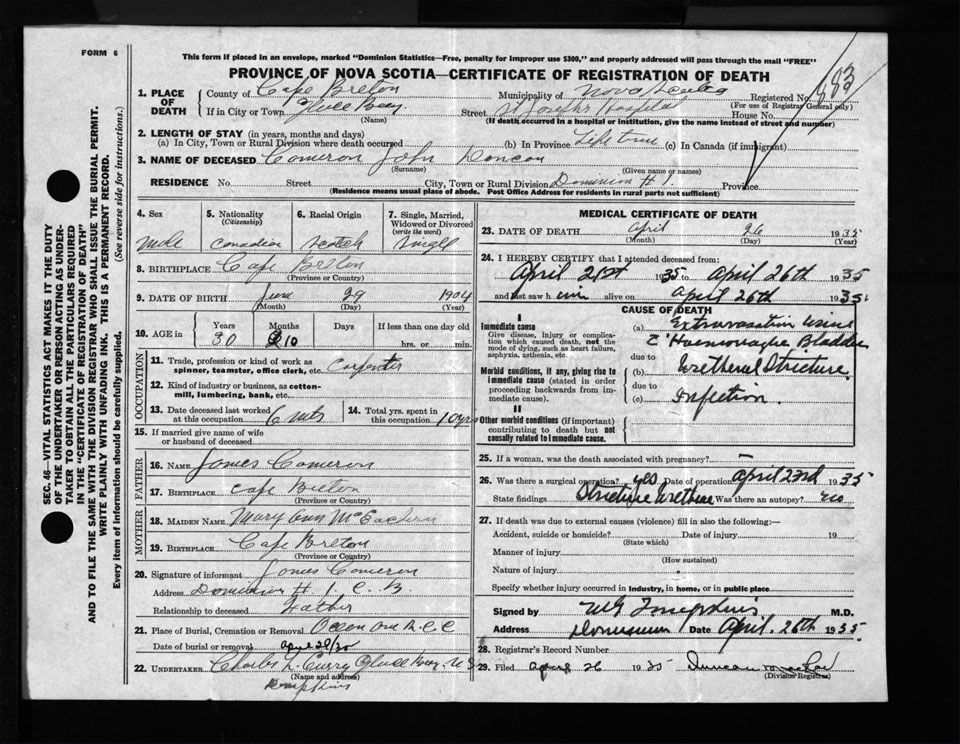 FORM 6
This form if placed in an envelope, marked "Dominion Statistics—Free, penalty for improper use $300," and properly addressed will pass through the mail "FREE"
PROVINCE OF NOVA SCOTIA—CERTIFICATE OF REGISTRATION OF DEATH
883
SEC. 46—VITAL STATISTICS ACT MAKES IT THE DUTY
OF THE UNDERTAKER OR PERSON ACTING AS UNDER-
TAKER TO OBTAIN ALL THE PARTICULARS REQUIRED
IN THE "CERTIFICATE OF REGISTRATION OF DEATH"
AND TO FILE THE SAME WITH THE DIVISION REGISTRAR WHO SHALL ISSUE THE BURIAL PERMIT.
WRITE PLAINLY WITH UNFADING INK. THIS IS A PERMANENT RECORD.
Every item of information should be carefully supplied. (See reverse side for instructions.)
1. PLACE OF DEATH
County of Cape Breton Municipality of Nova Scotia Registered No.
(For use of Registrar General only)
If in City or Town Glace Bay Street St Josephs Hospital House No.
(Name) (If death occurred in a hospital or institution, give the name instead of street and number)
2. LENGTH OF STAY (in years, months and days)
(a) In City, Town or Rural Division where death occurred (b) In Province Life time (c) In Canada (if immigrant)
3. NAME OF DECEASED Cameron John Duncan
(Surname) (Given name or names)
RESIDENCE No. Street City, Town or Rural Division Dominion No 1 Province
(Residence means usual place of abode. Post Office Address for residents in rural parts not sufficient)
4. Sex
male
5. Nationality
(Citizenship)
Canadian
6. Racial Origin
Scotch
7. Single, Married,
Widowed or Divorced
(write the word)
Single
8. BIRTHPLACE Cape Breton
(Province or Country)
9. DATE OF BIRTH June 29 1904
(Month) (Day) (Year)
10. AGE in Years Months Days If less than one day old
30 10 hrs. or min.
OCCUPATION
11. Trade, profession or kind of work as
spinner, teamster, office clerk, etc. Carpenter
12. Kind of industry or business, as cotton-
mill, lumbering, bank, etc.
13. Date deceased last worked
at this occupation 6 mts
14. Total yrs. spent in
this occupation 10 yrs
15. If married give name of wife
or husband of deceased
FATHER
16. NAME James Cameron
17. BIRTHPLACE Cape Breton
(Province or Country)
MOTHER
18. MAIDEN NAME Mary Ann McEachern
19. BIRTHPLACE Cape Breton
(Province or Country)
20. Signature of informant James Cameron
Address Dominion No 1 C. B.
Relationship to deceased Father
21. Place of Burial, Cremation or Removal
Date of burial or removal April 28/35
22. UNDERTAKER Charles L. Curry Glace Bay N S
(Name and address)
MEDICAL CERTIFICATE OF DEATH
23. DATE OF DEATH April 26 1935
(Month) (Day) (Year)
24. I HEREBY CERTIFY that I attended deceased from:
April 21st 1935 to April 26th 1935
and last saw him alive on April 26th 1935
CAUSE OF DEATH
I
Immediate cause
Give disease, injury or complica-
tion which caused death, not the
mode of dying, such as heart failure,
asphyxia, asthenia, etc.
(a) Extravasation Urine
c̄ Haemorrhagic Bladder
due to
Morbid conditions, if any, giving rise to
immediate cause (stated in order
proceeding backwards from im-
mediate cause).
(b) Urethral Stricture
due to
(c) Infection.
II
Other morbid conditions (if important)
contributing to death but not
causally related to immediate cause.
25. If a woman, was the death associated with pregnancy? —
26. Was there a surgical operation? yes Date of operation April 23rd 1935
State findings Stricture Urethrae Was there an autopsy? no
27. If death was due to external causes (violence) fill in also the following:—
Accident, suicide or homicide? Date of injury 19
(State which)
Manner of injury
(How sustained)
Nature of injury
Specify whether injury occurred in industry, in home, or in public place
Signed by M.D.
Address Dominion Date April 26th 1935
28. Registrar's Record Number
29. Filed April 26 1935
(Division Registrar)